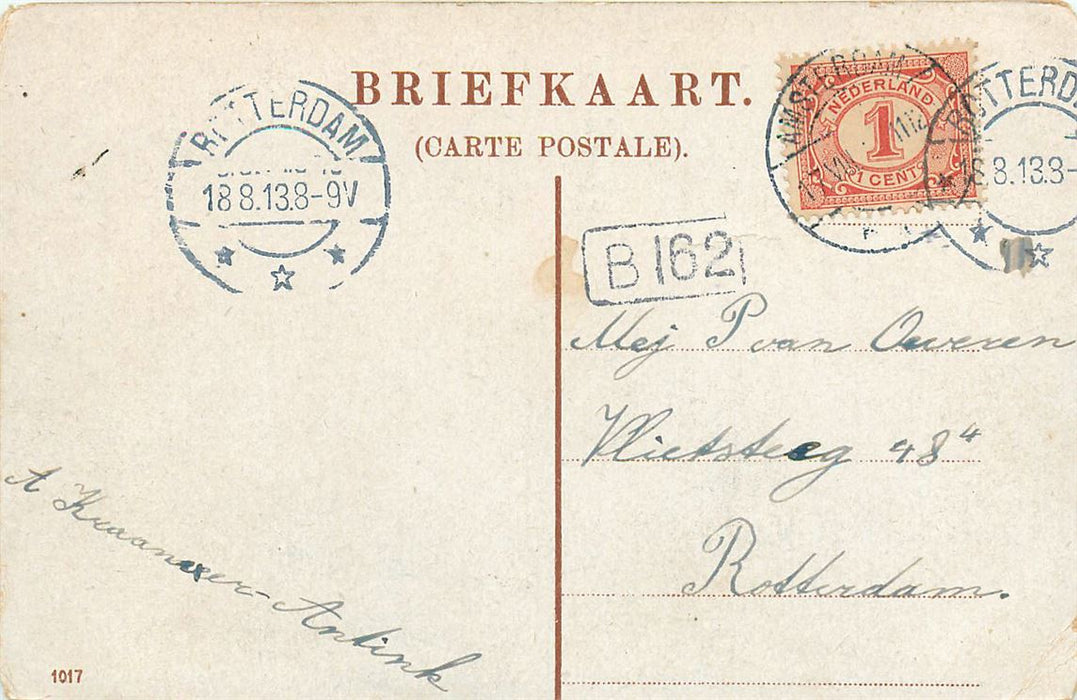 BRIEFKAART.
(CARTE POSTALE).
ROTTERDAM
18 8.13 8-9V
AMSTERDAM
NEDERLAND
1
1 CENT
ROTTERDA
18 8.13 3-
B 162
Mej P van Oeveren
Vlietsteeg 48⁴
Rotterdam.
A Kraanveer-Antink
1017